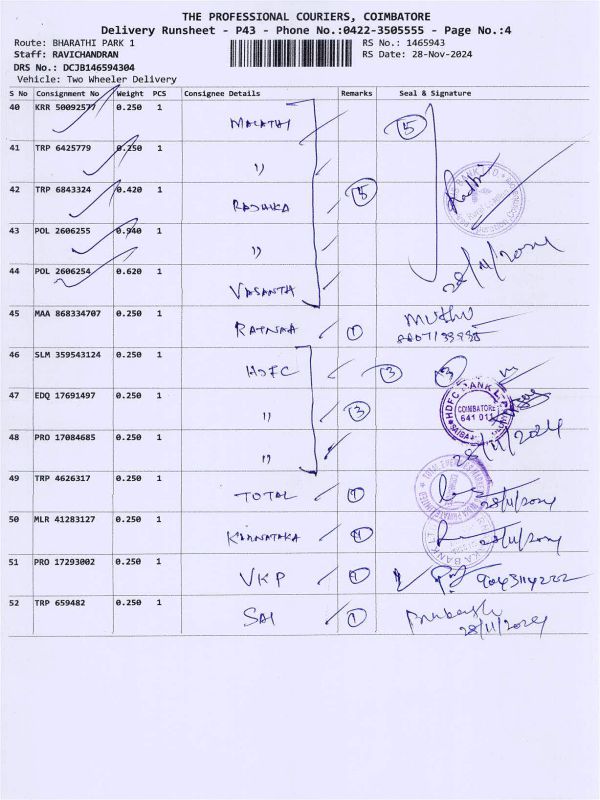 THE PROFESSIONAL COURIERS, COIMBATORE
Delivery Runsheet - P43 - Phone No.:0422-3505555 - Page No.:4
Route: BHARATHI PARK 1 RS No.: 1465943
Staff: RAVICHANDRAN RS Date: 28-Nov-2024
DRS No.: DCJB146594304
Vehicle: Two Wheeler Delivery
S No Consignment No Weight PCS Consignee Details Remarks Seal & Signature
40 KRR 50092577 0.250 1 MALATHI 5
41 TRP 6425779 0.250 1 "
42 TRP 6843324 0.420 1 RADHIKA 5
43 POL 2606255 0.940 1 "
28/11/2024
44 POL 2606254 0.620 1 VASANTH
45 MAA 868334707 0.250 1 RATNAA 1 Muthu
46 SLM 359543124 0.250 1 HDFC 3 3
47 EDQ 17691497 0.250 1 " 3 HDFC BANK COIMBATORE 641 011
48 PRO 17084685 0.250 1 "
28/11/2024
49 TRP 4626317 0.250 1 TOTAL 1 28/11/2024
50 MLR 41283127 0.250 1 KARNATAKA 1 28/11/2024
51 PRO 17293002 0.250 1 VKP 1
52 TRP 659482 0.250 1 SAI 1 Prakash
28/11/2024